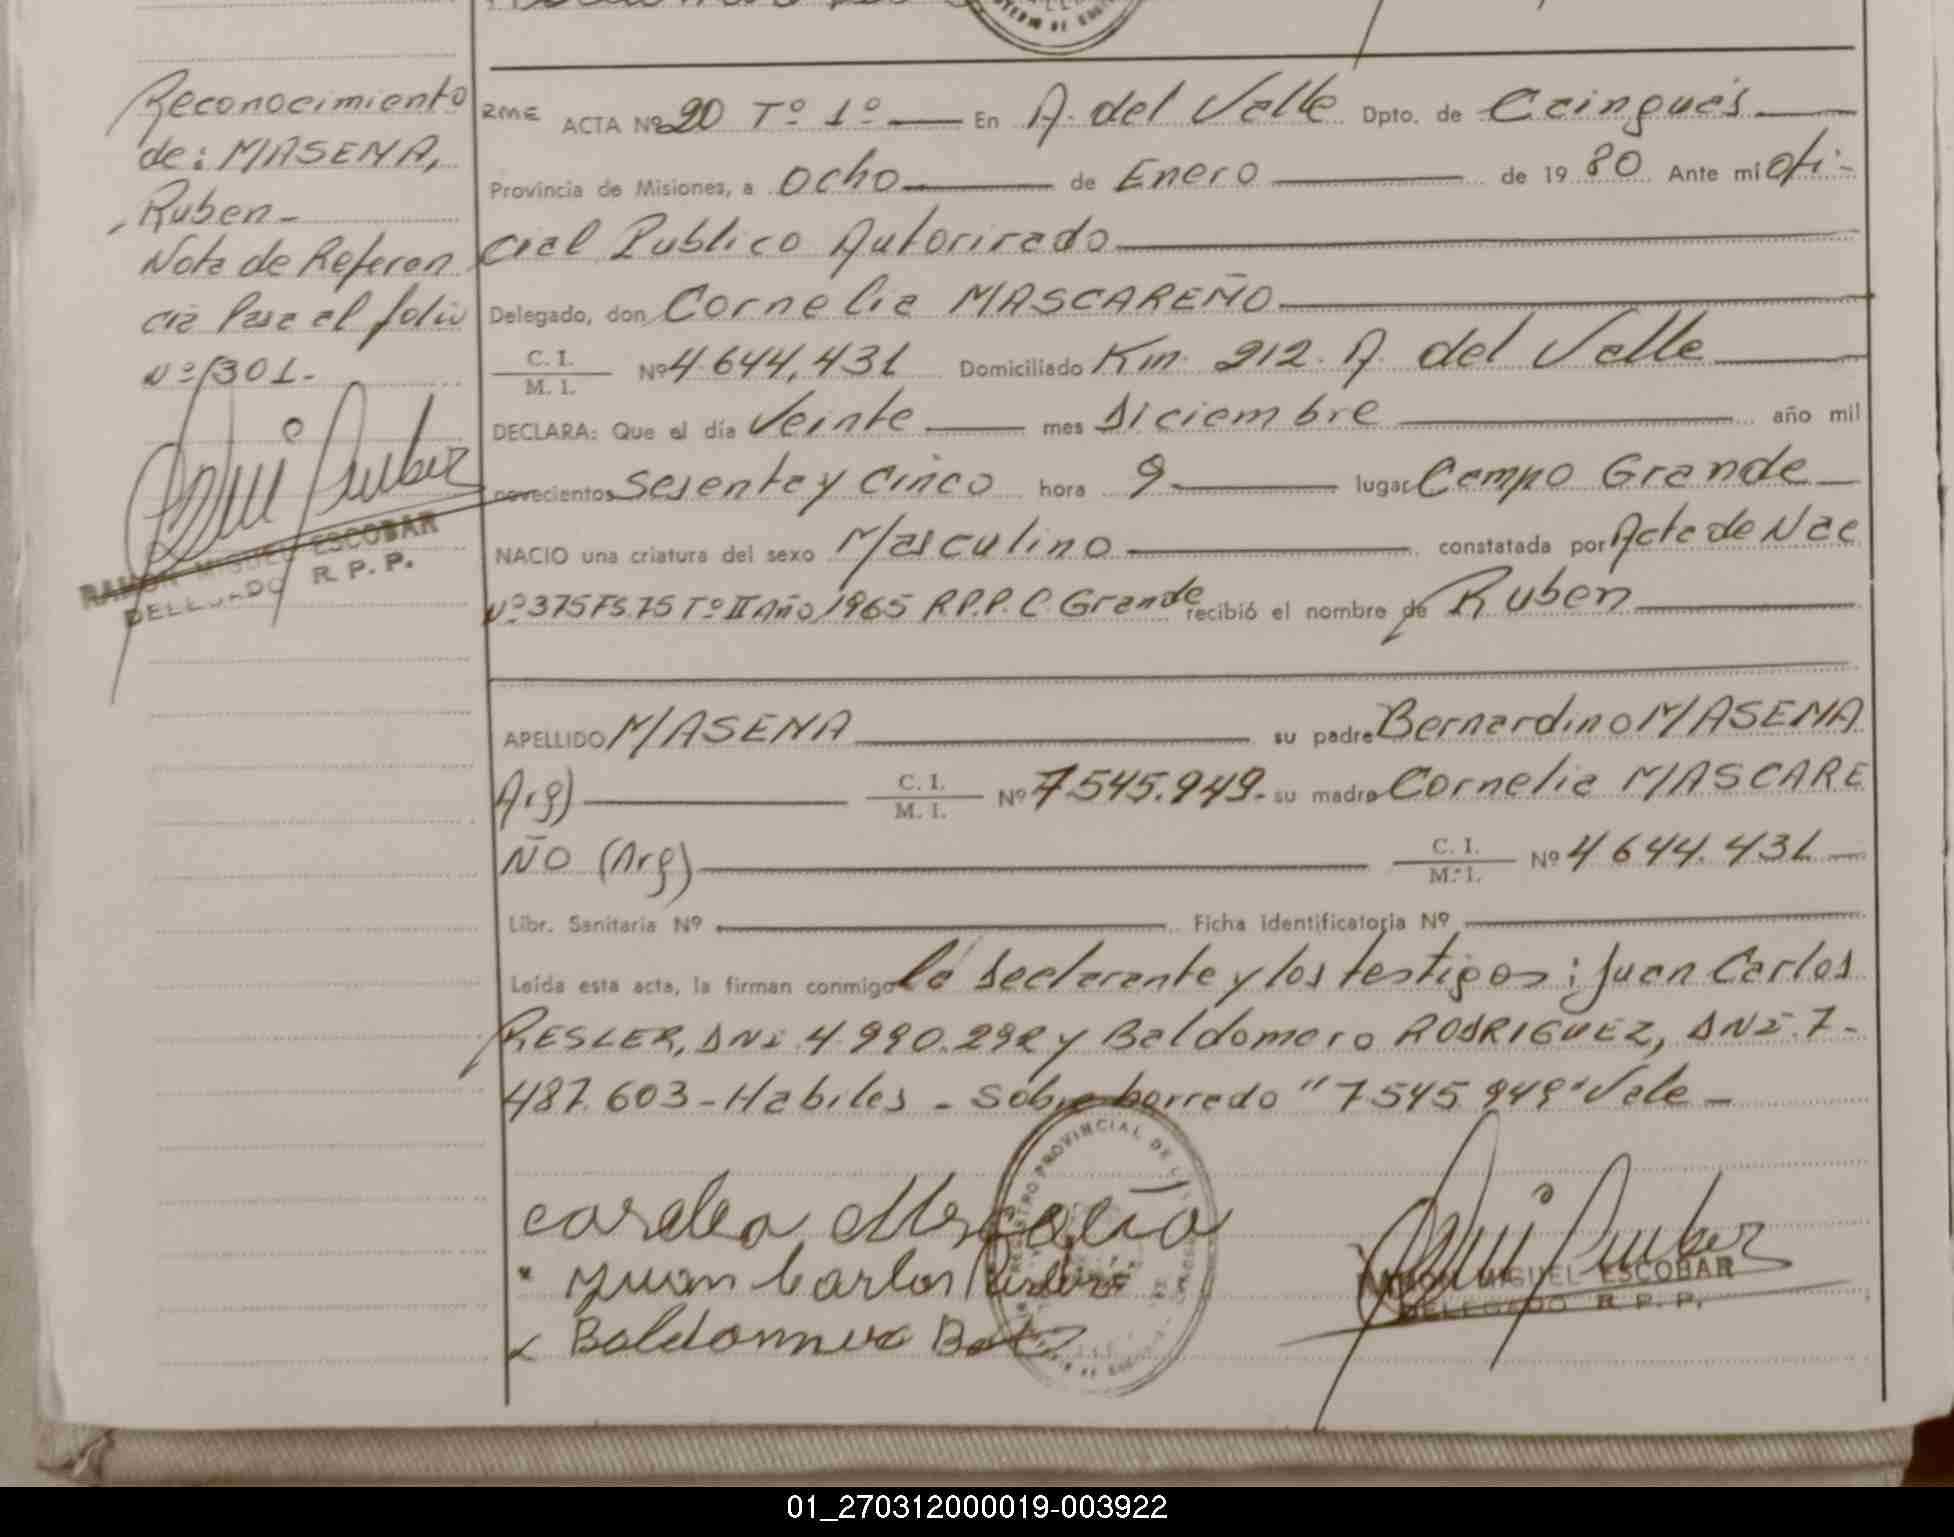 Reconocimiento
de: MASENA,
Ruben -
Nota de Referen
cia Pase al folio
Nº 301.-
RAMON MIGUEL ESCOBAR
DELEGADO R. P. P.
RME ACTA Nº 20 Tº 1º — En A. del Valle Dpto. de Caingués —
Provincia de Misiones, a ocho — de Enero — de 19 80 Ante mi ofi-
cial Publico Autorizado —
Delegado, don Cornelia MASCAREÑO —
C. I.
M. I. Nº 4.644,431 Domiciliado Km. 212. A. del Valle —
DECLARA: Que el día Veinte — mes Diciembre — año mil
novecientos sesenta y cinco hora 9 — lugar Campo Grande —
NACIO una criatura del sexo Masculino — constatada por Acta de Nac
Nº 375 FS. 75 Tº II Año 1965 R.P.P. C. Grande recibió el nombre de Ruben —
APELLIDO MASENA — su padre Bernardino MASENA
Arg) — C. I.
M. I. Nº 7.545.949.- su madre Cornelia MASCARE
ÑO (Arg) — C. I.
M. I. Nº 4.644.431 —
Libr. Sanitaria Nº — Ficha identificatoria Nº —
Leída esta acta, la firman conmigo la declarante y los testigos: Juan Carlos
RESLER, DNI. 4.990.292 y Baldomero RODRIGUEZ, DNI. 7-
487.603 - Habiles - sobre borrado "7545949" Vale -
Juan Carlos
RAMON MIGUEL ESCOBAR
DELEGADO R. P. P.
01_270312000019-003922